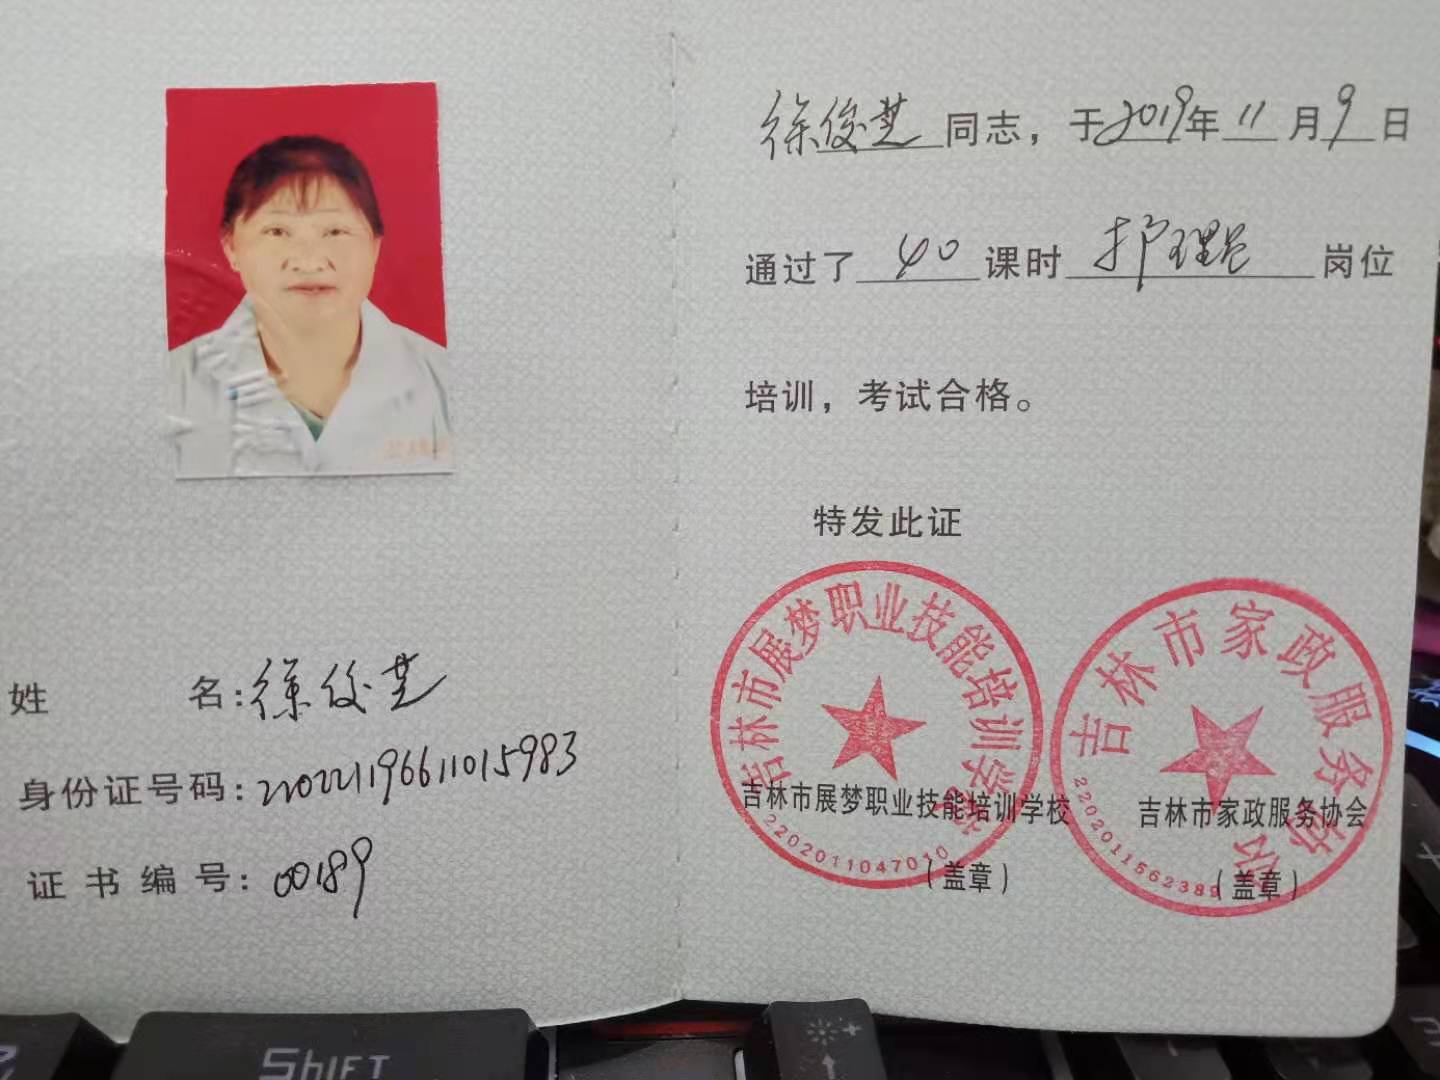 姓 名:徐俊芝
身份证号码:220221196611015983
证书编号:00189
徐俊芝同志，于2019年11月9日
通过了40课时护理员岗位
培训，考试合格。
特发此证
吉林市展梦职业技能培训学校
吉林市展梦职业技能培训学校
2202011047010
（盖章）
吉林市家政服务协会
吉林市家政服务协会
2202011562389
（盖章）
SHIFT